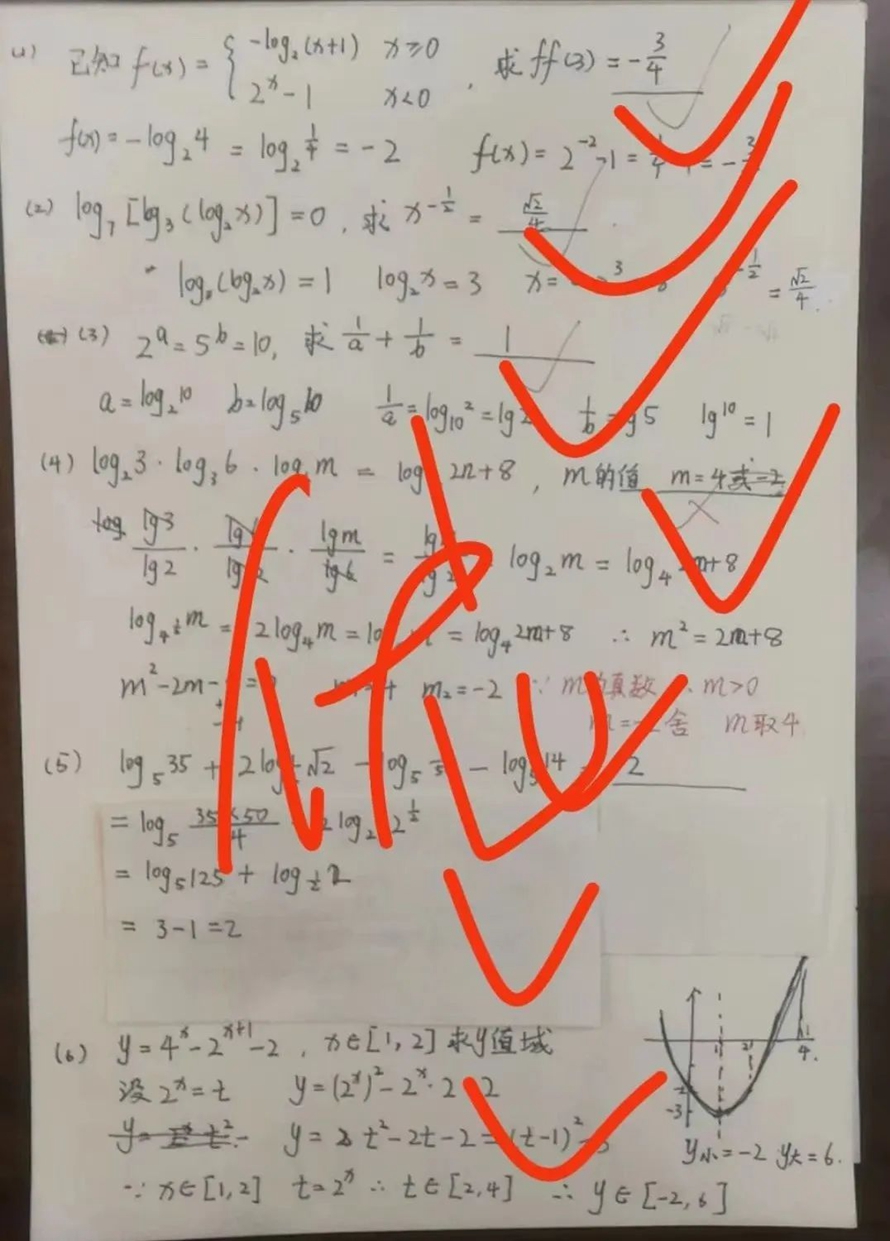 (1) 已知 f(x) = { -log₂(x+1) x≥0
2ˣ - 1 x<0 , 求 ff(3) = -3/4
f(x) = -log₂4 = log₂ 1/4 = -2 f(x) = 2⁻² - 1 = 1/4
(2) log₇[log₃(log₂x)] = 0 , 求 x^(-1/2) = √2/4
log₃(log₂x) = 1 log₂x = 3 x = = √2/4
(3) 2ᵃ = 5ᵇ = 10, 求 1/a + 1/b = 1
a = log₂10 b = log₅10 1/a = log₁₀2 = lg2 1/b = lg5 lg10 = 1
(4) log₂3 · log₃6 · log₆m = log 2m+8 , m的值 m=4或-2
lg3/lg2 · · lgm/lg6 = log₂m = log₄ 2m+8
= 2log₄m = = log₄2m+8 ∴ m² = 2m+8
m² - 2m - m₂ = -2 ∵ m 真数 m>0
舍 m取4
(5) log₅35 + 2log √2 - log₅ - log₅14 2
= log₅ 35×50/4 2log₂ 2^(1/2)
= log₅125 + log½2
= 3-1=2
(6) y = 4ˣ - 2ˣ⁺¹ - 2 , x∈[1,2] 求y值域
设 2ˣ = t y = (2ˣ)² - 2ˣ·2 - 2
y = t² - 2t - 2 = (t-1)² - 3
∵ x∈[1,2] t=2ˣ ∴ t∈[2,4] ∴ y∈[-2,6]
1 2 4
-2
-3
y小=-2 y大=6.